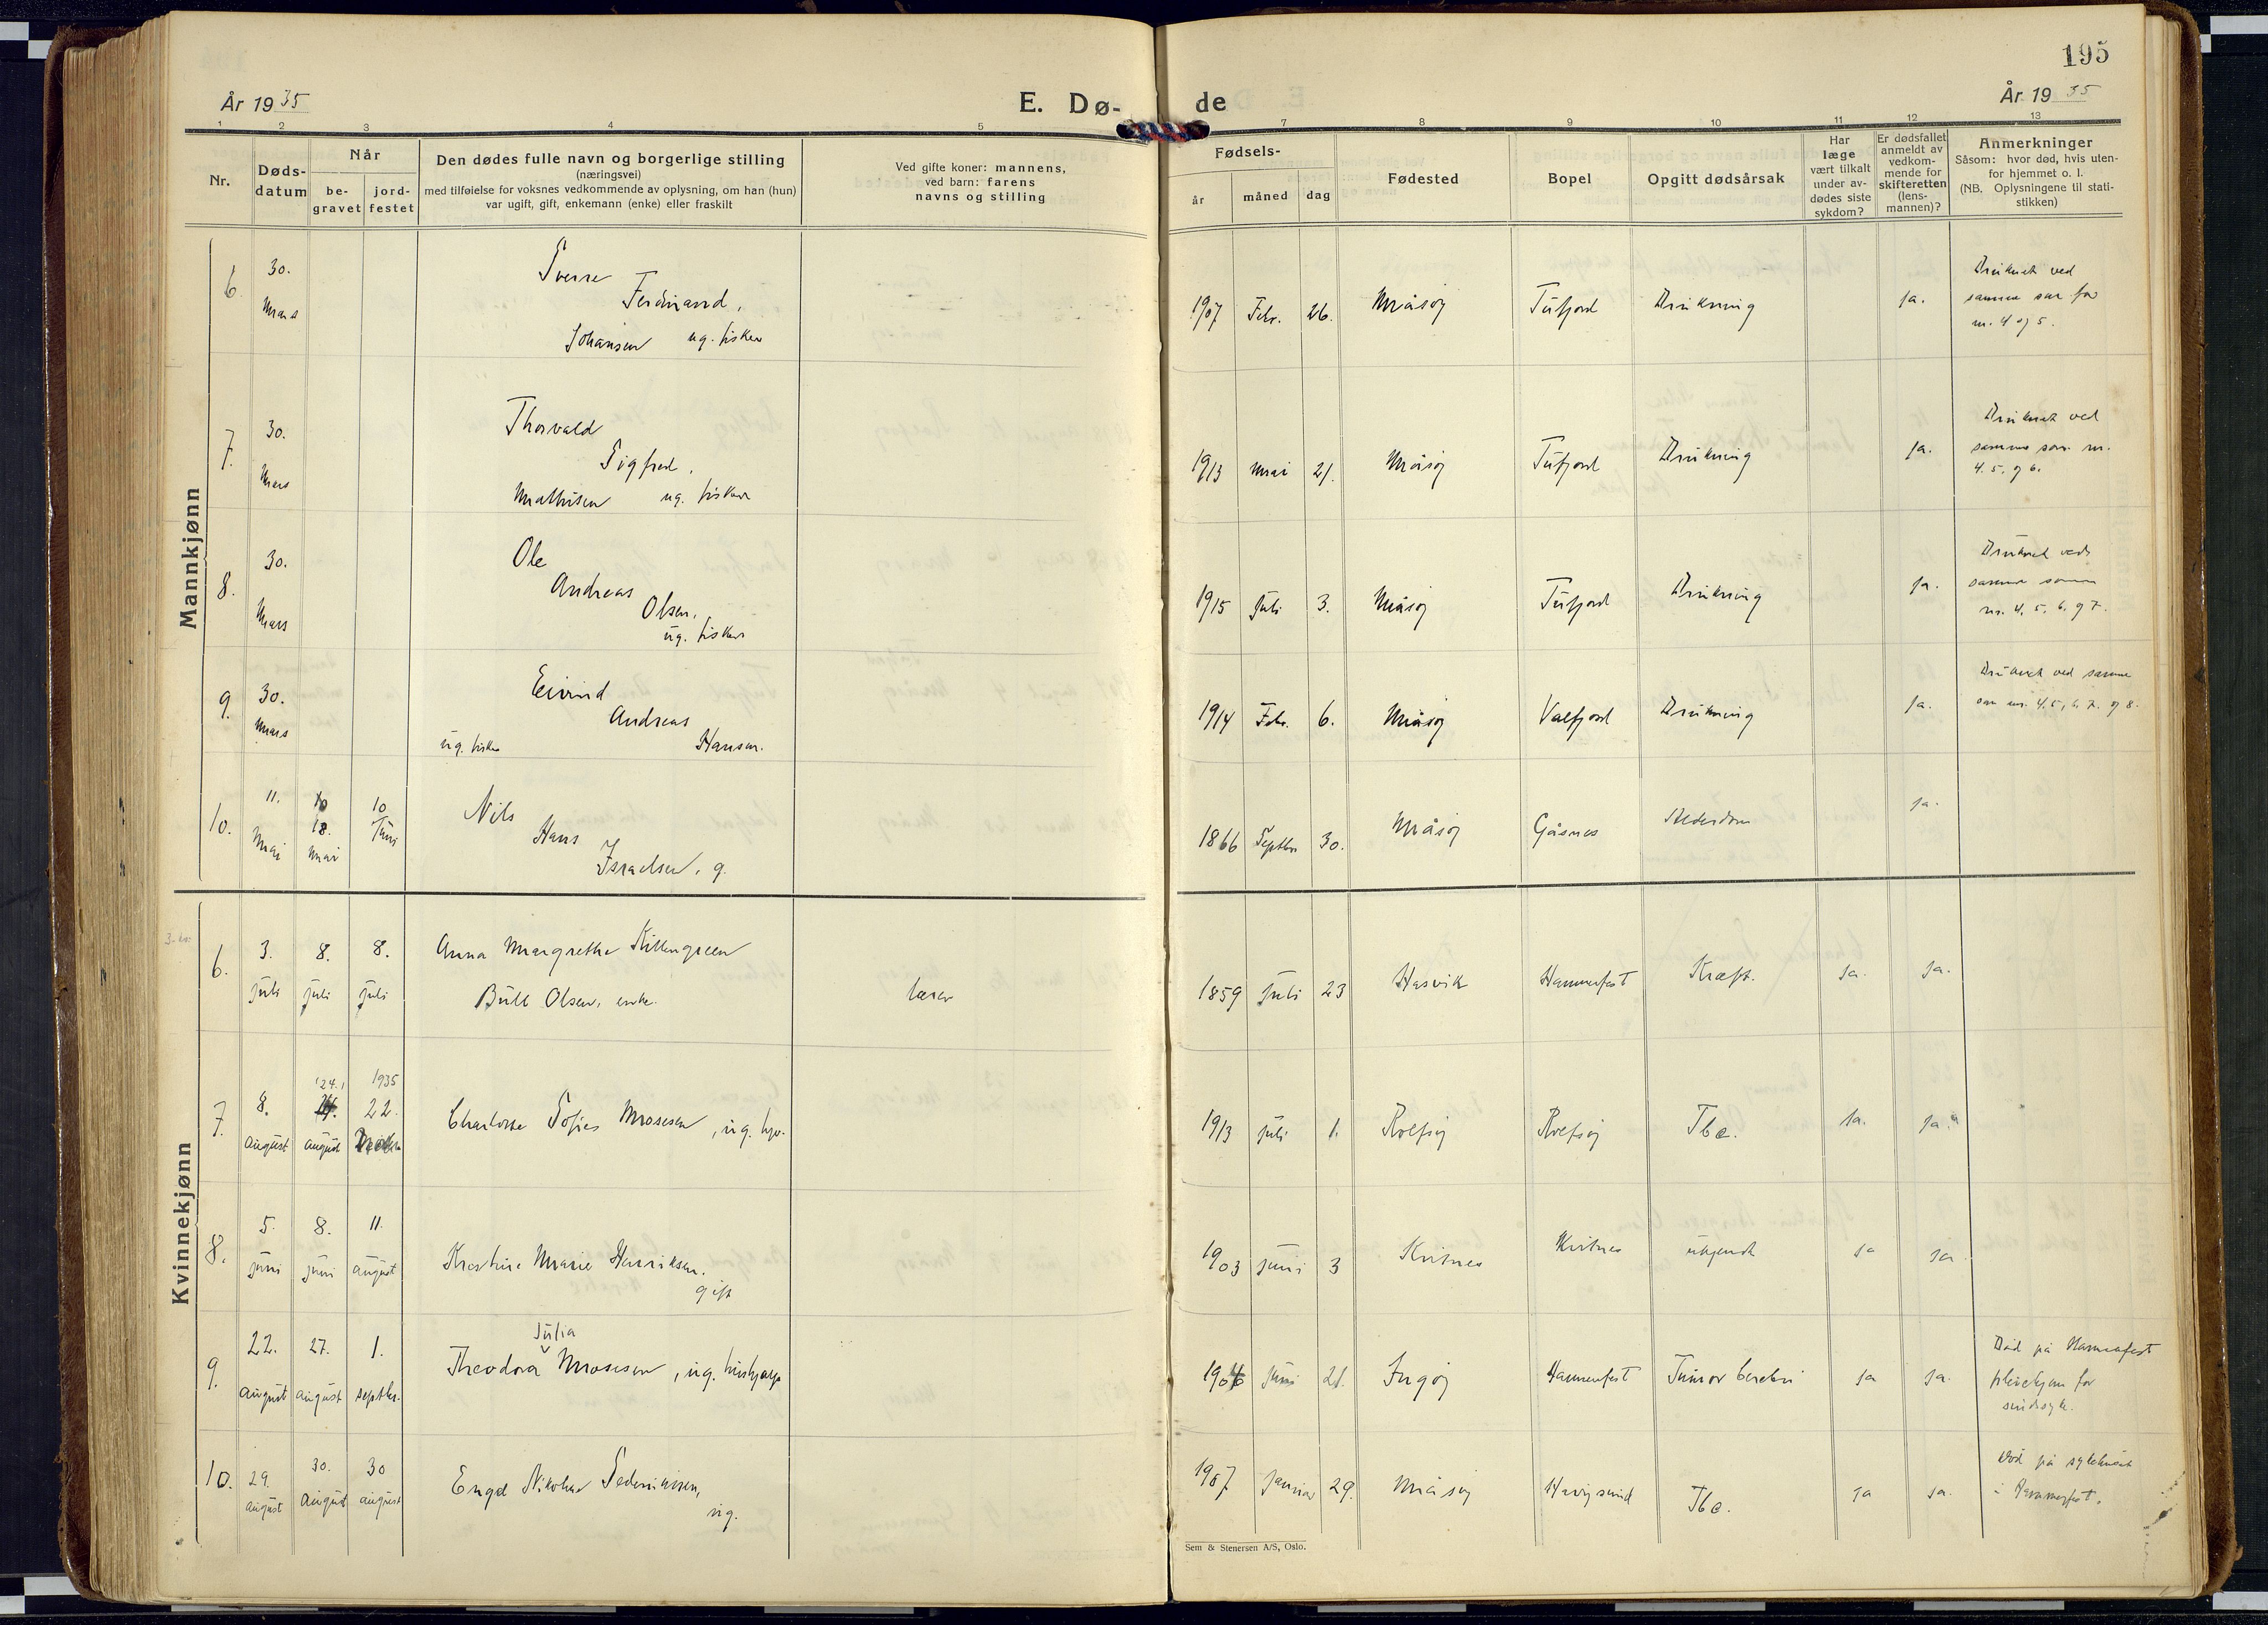 195
År 1935
E. Dø-
de
År 1935
1 2 3 4 5 7 8 9 10 11 12 13
Nr.
Døds-
datum
Når
be-
gravet
jord-
festet
Den dødes fulle navn og borgerlige stilling
(næringsvei)
med tilføielse for voksnes vedkommende av oplysning, om han (hun)
var ugift, gift, enkemann (enke) eller fraskilt
Ved gifte koner: mannens,
ved barn: farens
navns og stilling
Fødsels-
år
måned
dag
Fødested
Bopel
Opgitt dødsårsak
Har
læge
vært tilkalt
under av-
dødes siste
sykdom?
Er dødsfallet
anmeldt av
vedkom-
mende for
skifteretten
(lens-
mannen)?
Anmerkninger
Såsom: hvor død, hvis uten-
for hjemmet o. l.
(NB. Oplysningene til stati-
stikken)
Mannkjønn
6. 30. Mars
Sverre
Ferdinand,
Johansen ug. fisker
1907 Febr. 26. Måsøy Tufjord Drukning ja.
Druknet ved
samme som for
nr. 4 og 5.
7. 30. Mars
Thorvald
Sigfred,
Mathisen ug. fisker
1913 mai 21. Måsøy Tufjord Drukning ja.
Druknet ved
samme som nr.
4. 5, og 6.
8. 30. Mars
Ole
Andreas
Olsen,
ug. fisker
1915 Juli 3. Måsøy Tufjord Drukning ja.
Druknet ved
samme somm
nr. 4. 5, 6. og 7.
9. 30. Mars
Eivind
Andreas
ug. fisker Hansen.
1914 Febr. 6. Måsøy Valfjord Drukning ja.
Druknet ved samme
som nr. 4. 5, 6. 7. og 8.
10. 11. Mai 18. mai 10 Juni
Nils
Hans
Israelsen, g.
1866 Septbr 30. Måsøy Gåsnes Alderdom ja.
Kvinnekjønn
6. 3. juli 8. juli 8. juli
Anna Margrethe Killengreen
Bull Olsen, enke.
lærer
1859 juli 23 Hasvik Hammerfest Kræft. ja. ja.
7. 8. august 24. august 1935 22.
Charlotte Sofie Mosesen, ug. hjv.
1913 juli 1. Rolfsøy Rolfsøy Tbc. ja. ja.
8. 5. juni 8. juni 11. august
Kristine Marie Henriksen.
gift
1903 juni 3 Kvitnes Kvitnes ukjendt ja ja.
9. 22. august 27. august 1. septbr.
Julia
Theodora Mosesen, ug. hushjelp
1906 juni 21. Ingøy Hammerfest Tumor cerebri ja ja.
Død på Hammerfest
pleiehjem for
sindssyk.
10. 29. august 30. august 30 august
Engel Nikoline Pedersen,
ug.
1907 januar 29. Måsøy Havøysund Tbc. ja ja.
Død på sykehuset
i Hammerfest.
Sem & Stenersen A/S, Oslo.